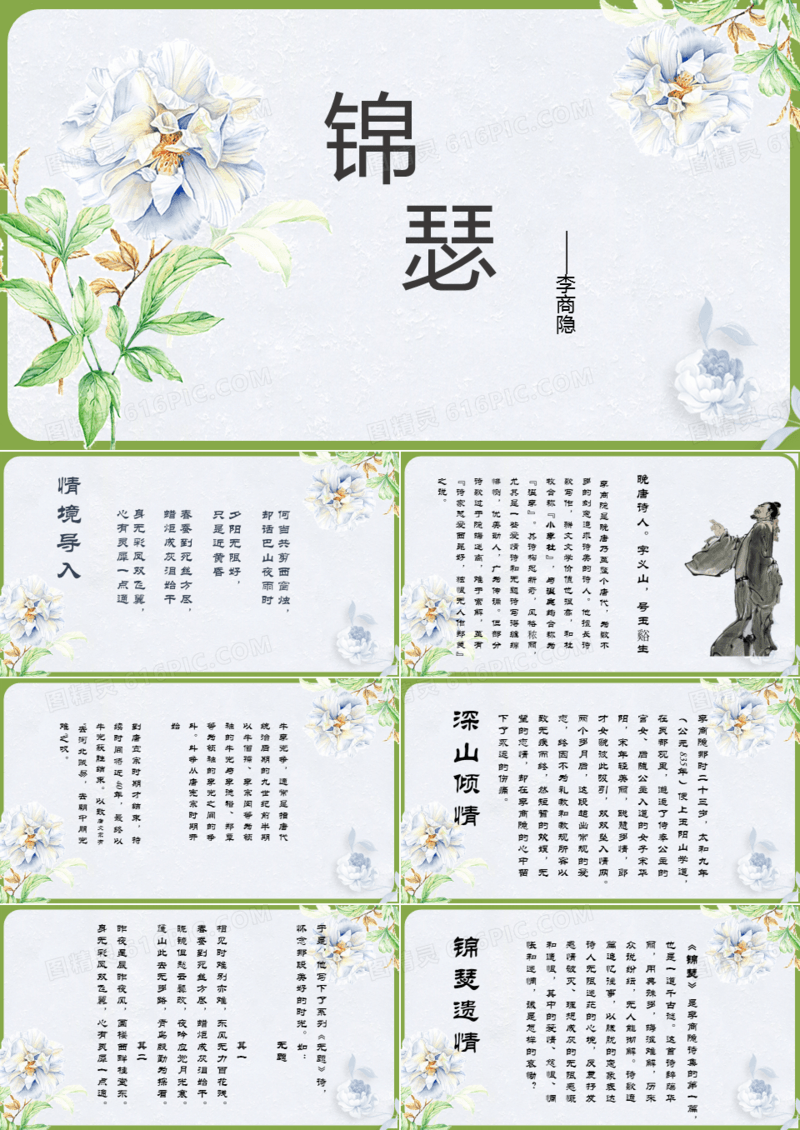 锦
瑟
——李商隐
情境导入
何当共剪西窗烛，
却话巴山夜雨时
夕阳无限好，
只是近黄昏
春蚕到死丝方尽，
蜡炬成灰泪始干
身无彩凤双飞翼，
心有灵犀一点通
晚唐诗人。字义山，号玉谿生
李商隐是晚唐乃至整个唐代，为数不
多的刻意追求诗美的诗人。他擅长诗
歌写作，骈文文学价值也很高，和杜
牧合称『小李杜』，与温庭筠合称为
『温李』。其诗构思新奇，风格秾丽，
尤其是一些爱情诗和无题诗写得缠绵
悱恻，优美动人，广为传诵。但部分
诗歌过于隐晦迷离，难于索解，至有
『诗家总爱西昆好，独恨无人作郑笺』
之说。
牛李党争，通常是指唐代
统治后期的九世纪前半期
以牛僧孺、李宗闵等为领
袖的牛党与李德裕、郑覃
等为领袖的李党之间的争
斗。斗争从唐宪宗时期开
始
到唐宣宗时期才结束，持
续时间将近40年，最终以
牛党获胜结束。以致唐文宗有
去河北贼易，去朝中朋党
难之叹。
深山倾情
李商隐那时二十三岁，太和九年
（公元835年）便上玉阳山学道，
在灵都观里，邂逅了侍奉公主的
宫女、后随公主入道的女子宋华
阳，宋年轻美丽，聪慧多情，郎
才女貌彼此吸引，双双坠入情网。
两个多月后，这段超出常规的爱
恋，终因不为礼教和教规所容以
致无疾而终，然短暂的欢娱，无
望的恋情，却在李商隐的心中留
下了永远的伤痛。
于是，他写下了系列《无题》诗，
怀念那段美好的时光。如：
无题
其一
相见时难别亦难，东风无力百花残。
春蚕到死丝方尽，蜡炬成灰泪始干。
晓镜但愁云鬓改，夜吟应觉月光寒。
蓬山此去无多路，青鸟殷勤为探看。
其二
昨夜星辰昨夜风，画楼西畔桂堂东。
身无彩凤双飞翼，心有灵犀一点通。
锦瑟遗情
《锦瑟》是李商隐诗集的第一篇，
也是一道千古谜。这首诗辞藻华
丽，用典殊多，晦涩难解，历来
众说纷纭，无人能彻解。诗歌通
篇追忆往事，以朦胧的意象表达
诗人无限迷茫的心境，反复抒发
感情破灭、理想成灰的无限感慨
和迷惘，其中的爱情、悲恨、惆
怅和迷惘，该是怎样的哀恸？